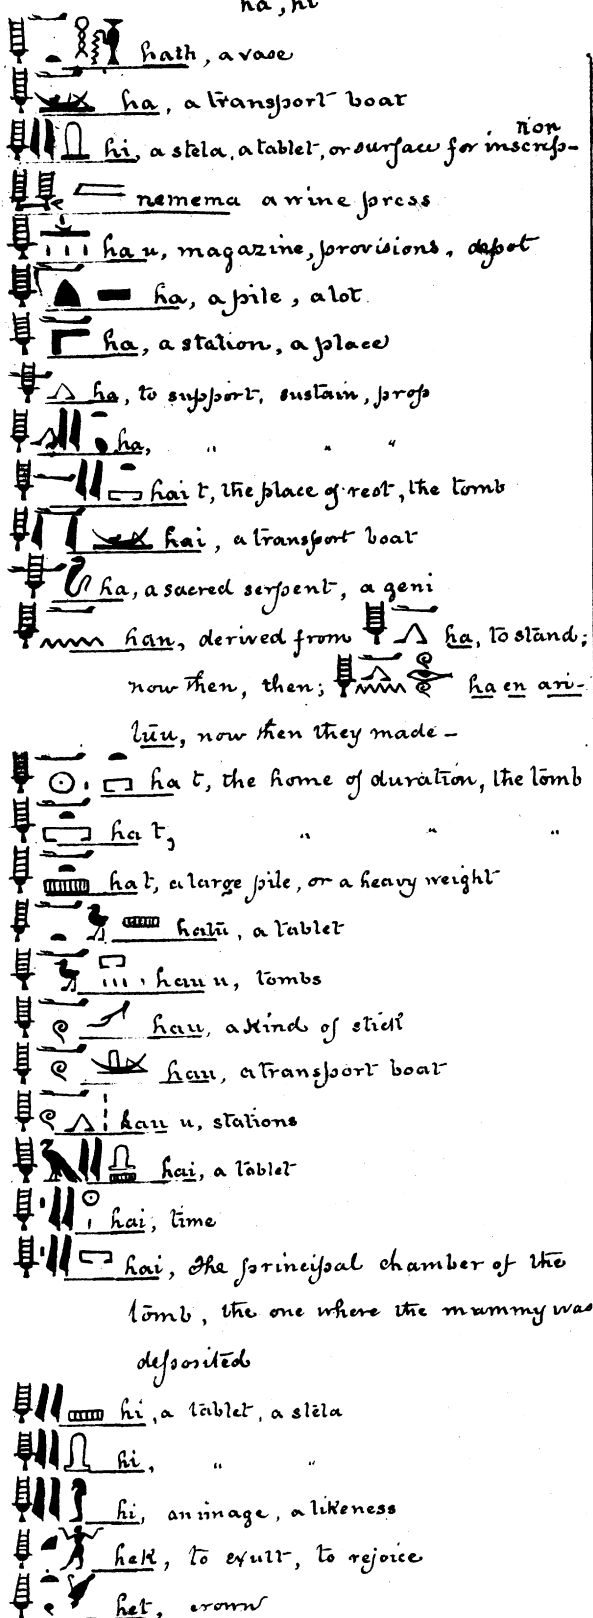 ha, hi
hath, a vase
ha, a transport boat
hi, a stela, a tablet, or surface for inscrip-
tion
nemema a wine press
ha u, magazine, provisions, depot
ha, a pile, a lot
ha, a station, a place
ha, to support, sustain, prop
ha, " " "
hai t, the place of rest, the tomb
hai, a transport boat
ha, a sacred serpent, a geni
han, derived from ha, to stand;
now then, then; ha en ari-
tūu, now then they made –
ha t, the home of duration, the tomb
ha t, " " "
ha t, a large pile, or a heavy weight
hatū, a tablet
hau u, tombs
hau, a kind of stick
hau, a transport boat
hau u, stations
hai, a tablet
hai, time
hai, the principal chamber of the
tomb, the one where the mummy was
deposited
hi, a tablet, a stela
hi, " "
hi, an image, a likeness
hek, to exult, to rejoice
het, crown